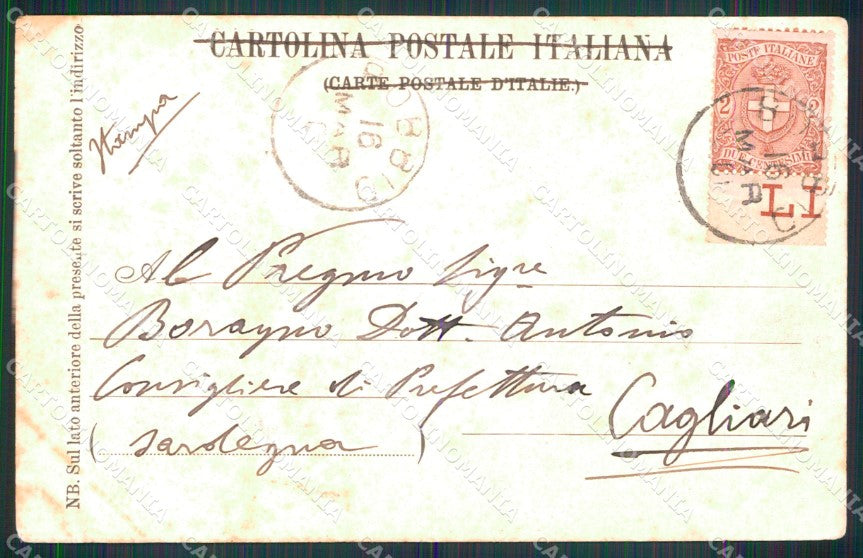 CARTOLINA POSTALE ITALIANA
(CARTE POSTALE D'ITALIE.)
Stampa
POSTE ITALIANE
2 2
DUE CENTESIMI
LI
BOBBIO
16
MAR
BOBBIO
16
MAR
Al Pregmo Sigre
Boragno Dott. Antonio
Consigliere di Prefettura
Cagliari
(Sardegna)
NB. Sul lato anteriore della presente si scrive soltanto l'indirizzo
CARTOLINOMANIA